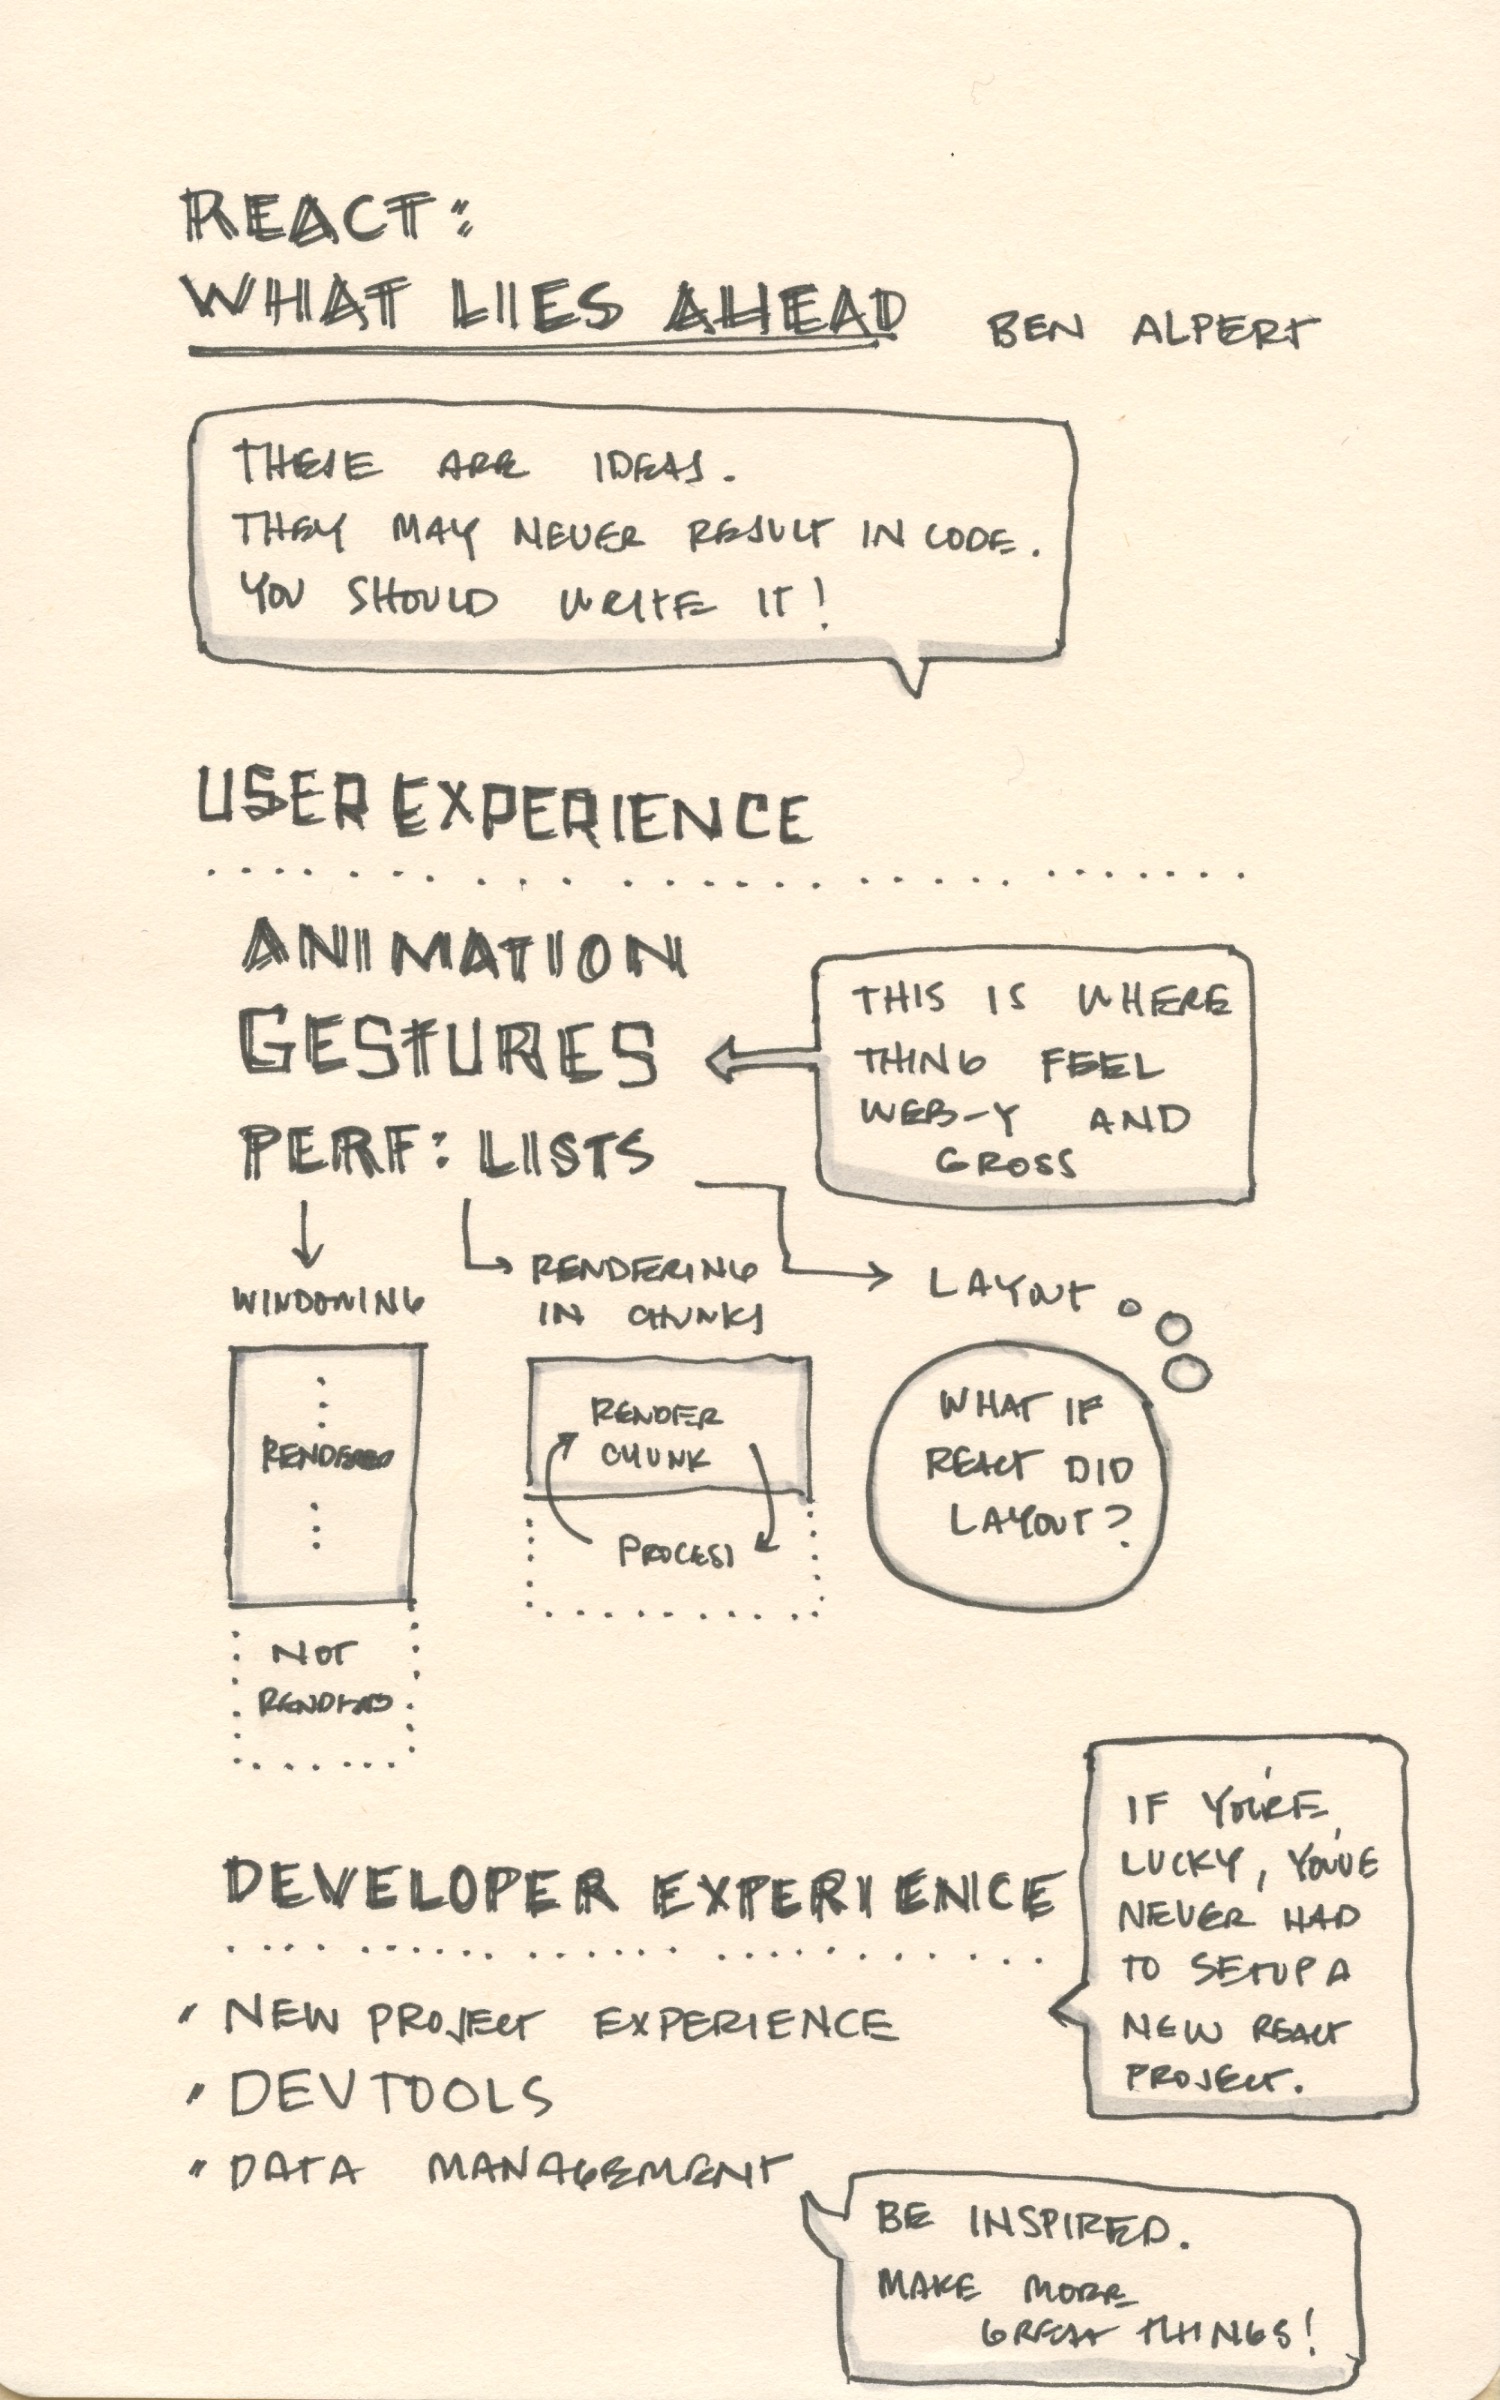 REACT:
WHAT LIES AHEAD
BEN ALPERT
THESE ARE IDEAS.
THEY MAY NEVER RESULT IN CODE.
YOU SHOULD WRITE IT!
USER EXPERIENCE
ANIMATION
GESTURES
THIS IS WHERE
THING FEEL
WEB-Y AND
GROSS
PERF: LISTS
WINDOWING
RENDERING
IN CHUNKS
LAYOUT
RENDERED
RENDER
CHUNK
PROCESS
WHAT IF
REACT DID
LAYOUT?
NOT
RENDERED
DEVELOPER EXPERIENCE
IF YOU'RE
LUCKY, YOU'VE
NEVER HAD
TO SETUP A
NEW REACT
PROJECT.
" NEW PROJECT EXPERIENCE
" DEVTOOLS
" DATA MANAGEMENT
BE INSPIRED.
MAKE MORE
GREAT THINGS!